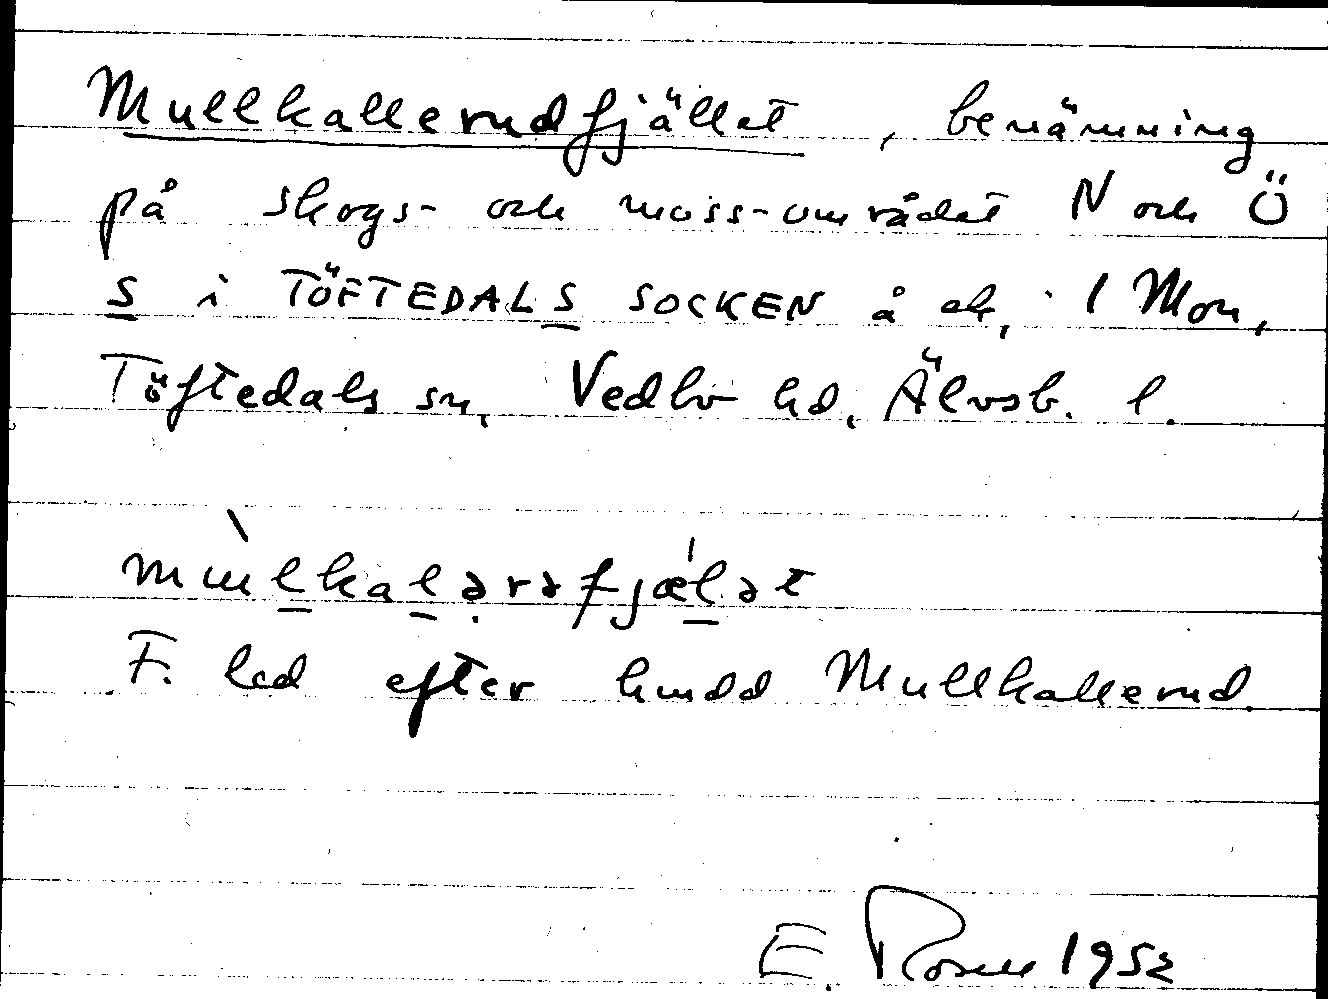 Mullkallerudfjället, benämning
på skogs- och moss-området N och Ö
S i TÖFTEDALS SOCKEN å ek, 1 Mon,
Töftedals sn, Vedbo hd, Älvsb. l.
F. led efter hmdd Mullkallerud.
E. Rosell 1952